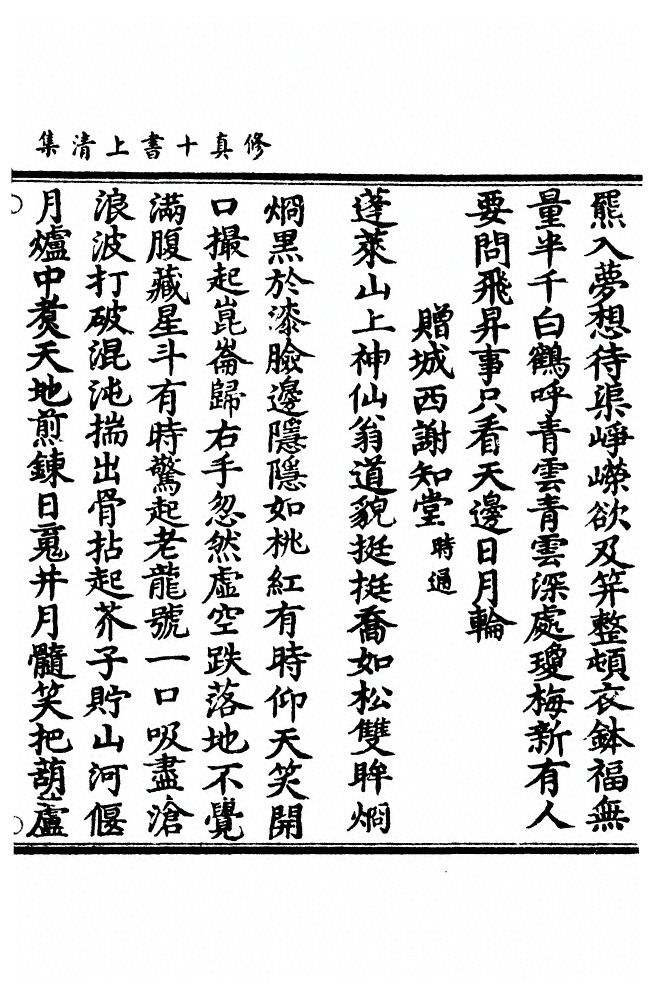 修真十書上清集
羆入夢想待渠崢嶸欲及笄整頓衣鉢福無
量半千白鶴呼青雲青雲深處瓊梅新有人
要問飛昇事只看天邊日月輪
贈城西謝知堂 時
蓬萊山上神仙翁道貌挺挺喬如松雙眸烱
烱黑於漆臉邊隱隱如桃紅有時仰天笑開
口撮起崑崙歸右手忽然虛空跌落地不覺
滿腹藏星斗有時驚起老龍號一口吸盡滄
浪波打破混沌揣出骨拈起芥子貯山河偃
月爐中煑天地煎鍊日䰟并月髓笑把葫蘆